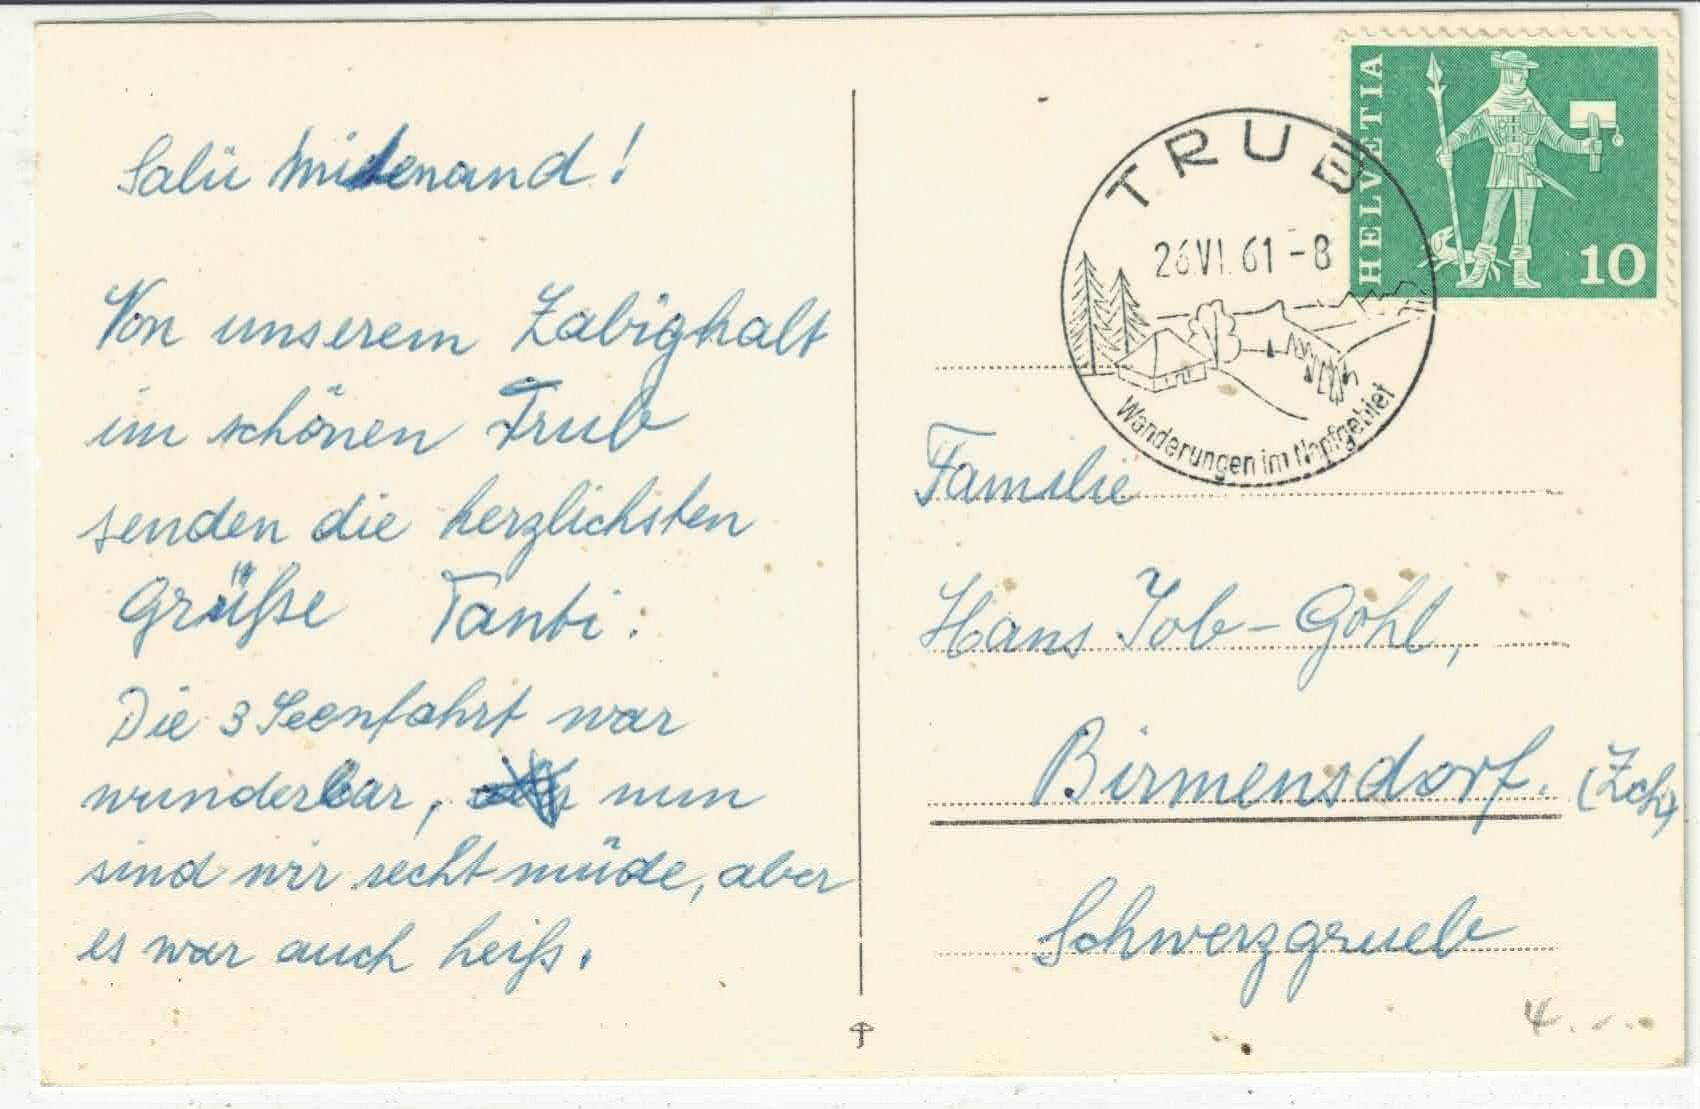 Salü mitenand!
Von unserem Zabighalt
im schönen Trub
senden die herzlichsten
Grüße Tanti:
Die 3 Seenfahrt war
wunderbar, nun
sind wir recht müde, aber
es war auch heiß.
TRUB
26 VI. 61 - 8
Wanderungen im Napfgebiet
HELVETIA
10
Familie
Hans Job-Gohl,
Birmensdorf. (Zch)
Schwerzgrueb
4